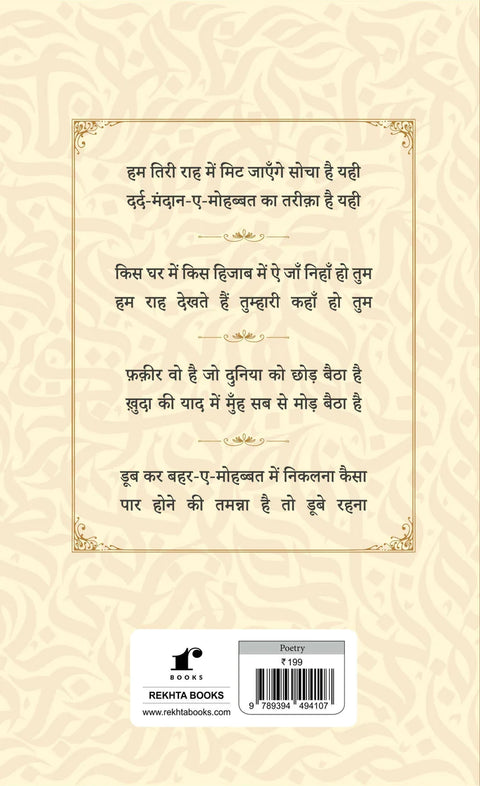 हम तिरी राह में मिट जाएँगे सोचा है यही
दर्द-मंदान-ए-मोहब्बत का तरीक़ा है यही
किस घर में किस हिजाब में ऐ जाँ निहाँ हो तुम
हम राह देखते हैं तुम्हारी कहाँ हो तुम
फ़क़ीर वो है जो दुनिया को छोड़ बैठा है
ख़ुदा की याद में मुँह सब से मोड़ बैठा है
डूब कर बहर-ए-मोहब्बत में निकलना कैसा
पार होने की तमन्ना है तो डूबे रहना
r
BOOKS
REKHTA BOOKS
www.rekhtabooks.com
Poetry
₹ 199
9 789394 494107